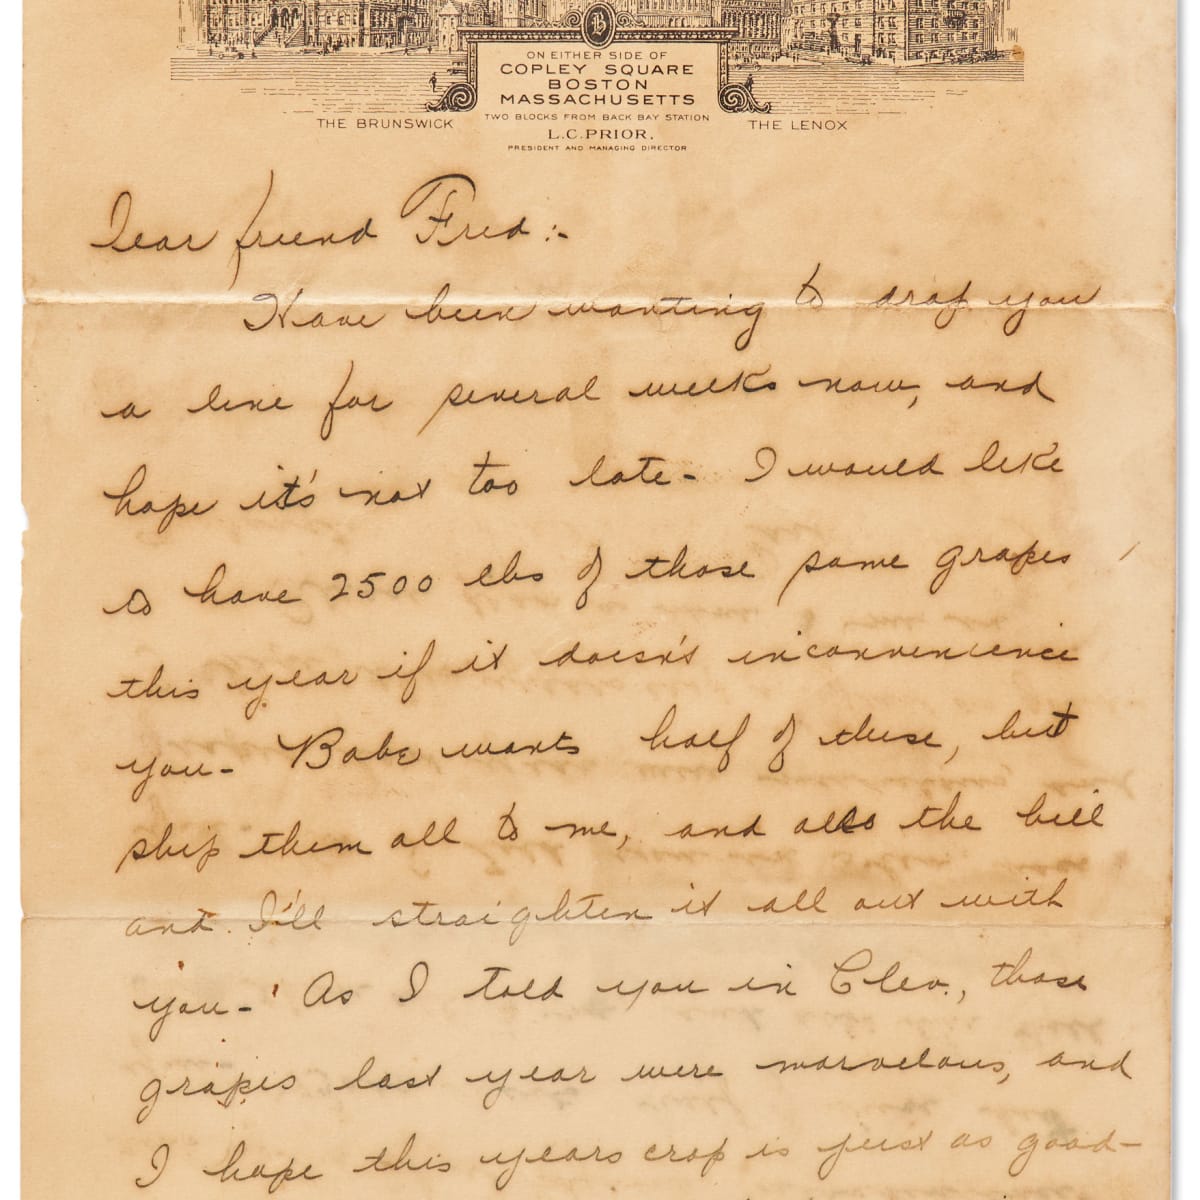 B
ON EITHER SIDE OF
COPLEY SQUARE
BOSTON
MASSACHUSETTS
TWO BLOCKS FROM BACK BAY STATION
THE BRUNSWICK
THE LENOX
L.C. PRIOR.
PRESIDENT AND MANAGING DIRECTOR
Dear friend Fred:-
Have been wanting to drop you
a line for several weeks now, and
hope it's not too late - I would like
to have 2500 lbs of those same grapes
this year if it doesn't inconvenience
you - Babe wants half of these, but
ship them all to me, and also the bill
and I'll straighten it all out with
you - As I told you in Clev., those
grapes last year were marvelous, and
I hope this years crop is just as good -